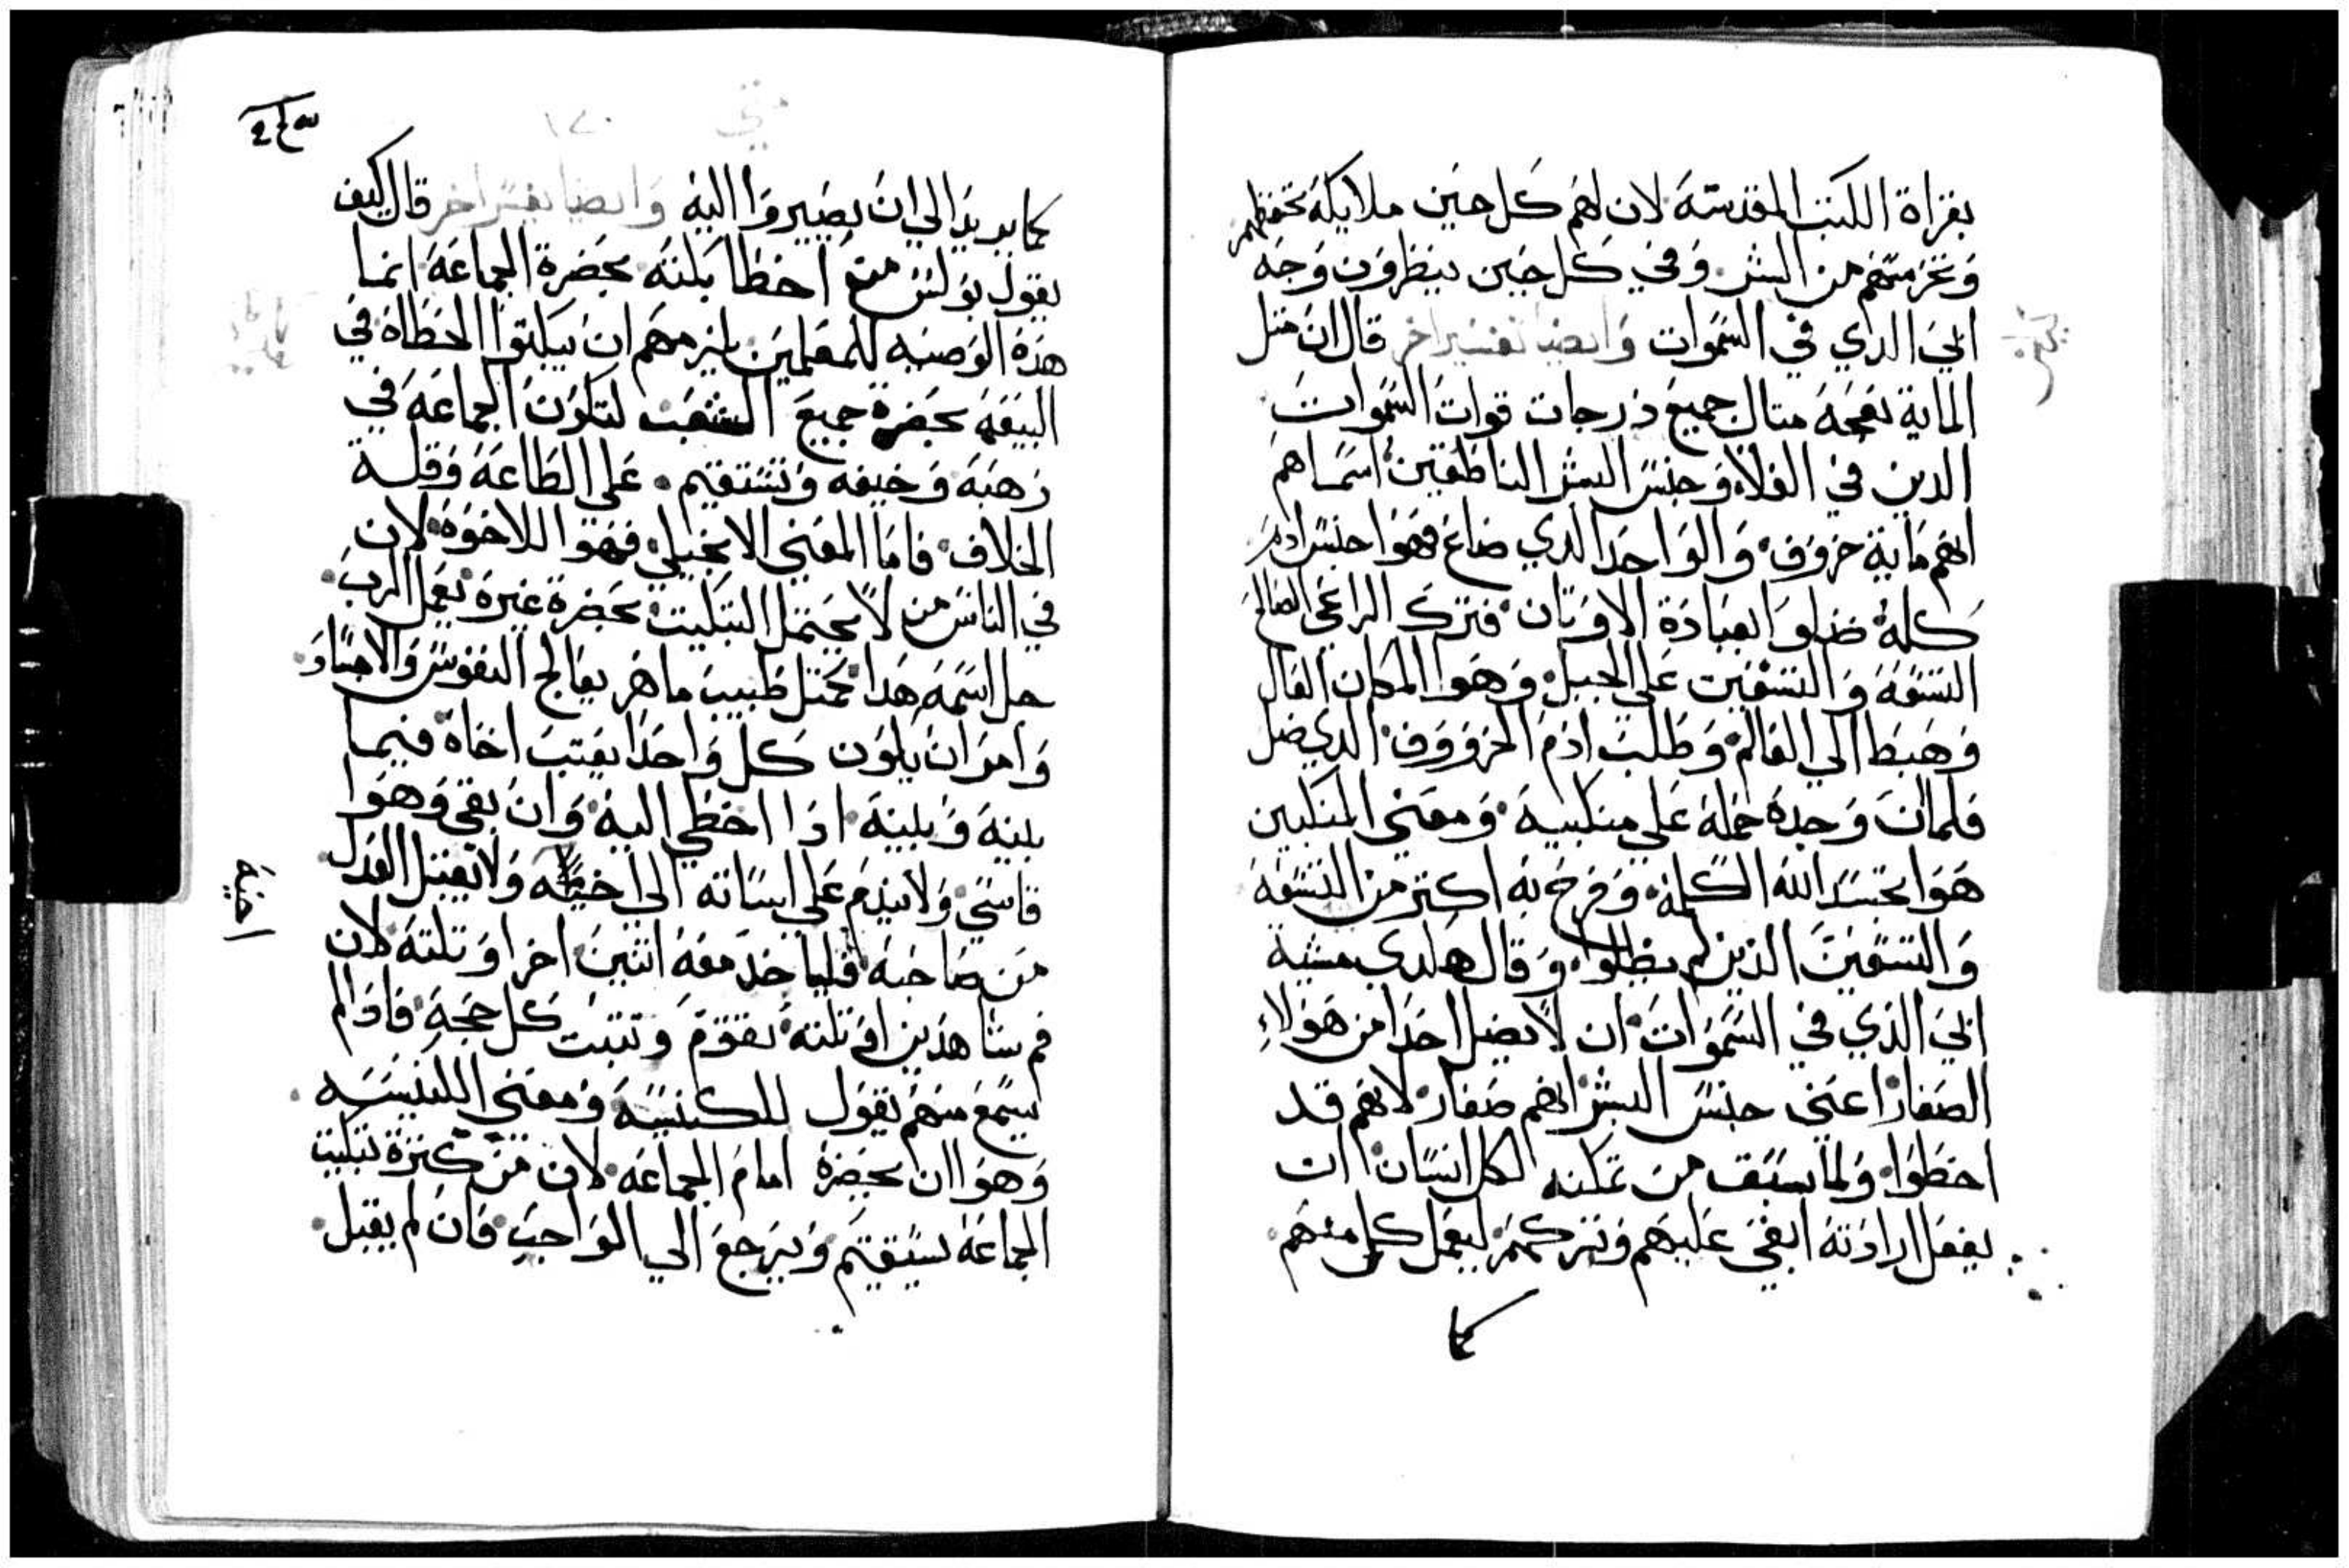 بقراة الكتب المقدسة لان لهم كل حين ملايكة تحفظهم
وتحرسهم من الشر وفي كل حين ينظرون وجه
ابي الذي في السموات وايضا تفسير اخر قال ان مثل
الماية نعجة مثال جميع درجات قوات السموات
الدين في العلاء وجنس البشر الناطقين اسماهم
انهم ماية خروف والواحد الدي ضاع فهوا جنس ادم
كله ضلوا بعبادة الاوتان فترك الراعي الصالح
التسعة والتسعين علي الجبل وهوا المكان العال
وهبط الي العالم وطلب ادم الخروف الدي ضل
فلما ان وجده حمله علي منكبيه ومعني المنكبين
هوا تجسد الله الكلمة وفرح به اكتر من التسعة
والتسعين الذين لم يظلوا وقال هكدي مشية
ابي الذي في السموات ان لا يضل احدا من هولاء
الصغار اعني جنس البشر انهم صغار لانهم قد
اخطوا ولما سبق من تمكنه لكل انسان ان
يفعل ارادته ابقي عليهم وتركهم ليعمل كل منهم
كما
متي
١٧٠
كما يريد الي ان يصيروا اليه وايضا تفسير اخر قال كيف
يقول بولس من اخطا بكته بحضرة الجماعة انما
هده الوصيه للمعلمين يلزمهم ان يبكتوا الخطاة في
البيعة بحضرة جميع الشعب لتكون الجماعة في
رهبة وخيفه وتستقيم علي الطاعة وقلة
الخلاف فاما المعني الانجيلي فهوا للاخوة لان
في الناس من لا يحتمل التبكيت بحضرة غيره فعمل الرب
جل اسمه هدا كمتل طبيب ماهر يعالج النفوس والاجساد
وامر ان يكون كل واحد يعتب اخاه فيما
بينه وبينه ادا اخطي اليه وان بقي وهوا
قاسي ولا يندم علي اساته الي ولا يقبل العدل
اخيه
من صاحبه فليا خد معه اتنين اخر او تلتة لان
فم شاهدين او تلتة تقوم وتتبت كل حجة فادا لم
يسمع منهم يقول للكنيسة ومعني الكنيسه
وهوا ان بحضرة امام الجماعة لان من كترة تبكيت
الجماعة يستقيم ويرجع الي الواجب فان لم يقبل